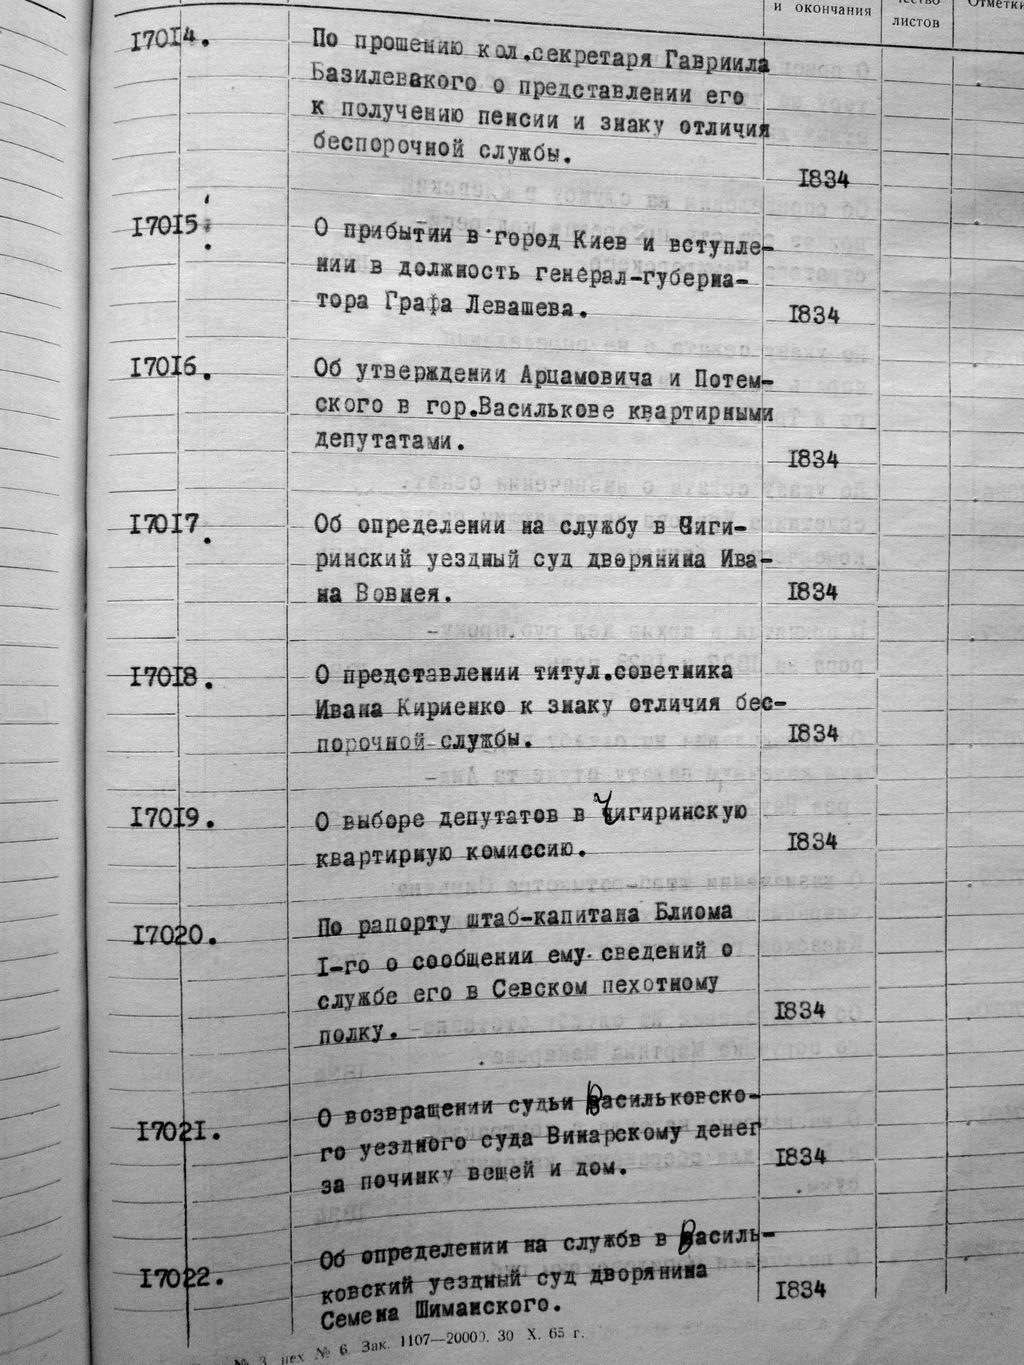 и окончания
листов
Отметки
17014.
По прошению кол.секретаря Гавриила
Базилевакого о представлении его
к получению пенсии и знаку отличия
беспорочной службы.
1834
17015.
О прибытии в город Киев и вступле-
нии в должность генерал-губерна-
тора Графа Левашева.
1834
17016.
Об утверждении Арцамовича и Потем-
ского в гор.Василькове квартирными
депутатами.
1834
17017.
Об определении на службу в Чиги-
ринский уездный суд дворянина Ива-
на Вовнея.
1834
17018.
О представлении титул.советника
Ивана Кириенко к знаку отличия бес-
порочной службы.
1834
17019.
О выборе депутатов в Чигиринскую
квартирную комиссию.
1834
17020.
По рапорту штаб-капитана Блиома
I-го о сообщении ему сведений о
службе его в Севском пехотному
полку.
1834
17021.
О возвращении судьи Васильковско-
го уездного суда Винарскому денег
за починку вещей и дом.
1834
17022.
Об определении на службв в Василь-
ковский уездный суд дворянина
Семена Шиманского.
1834
№ 3, цех № 6. Зак. 1107—20000. 30 X. 65 г.